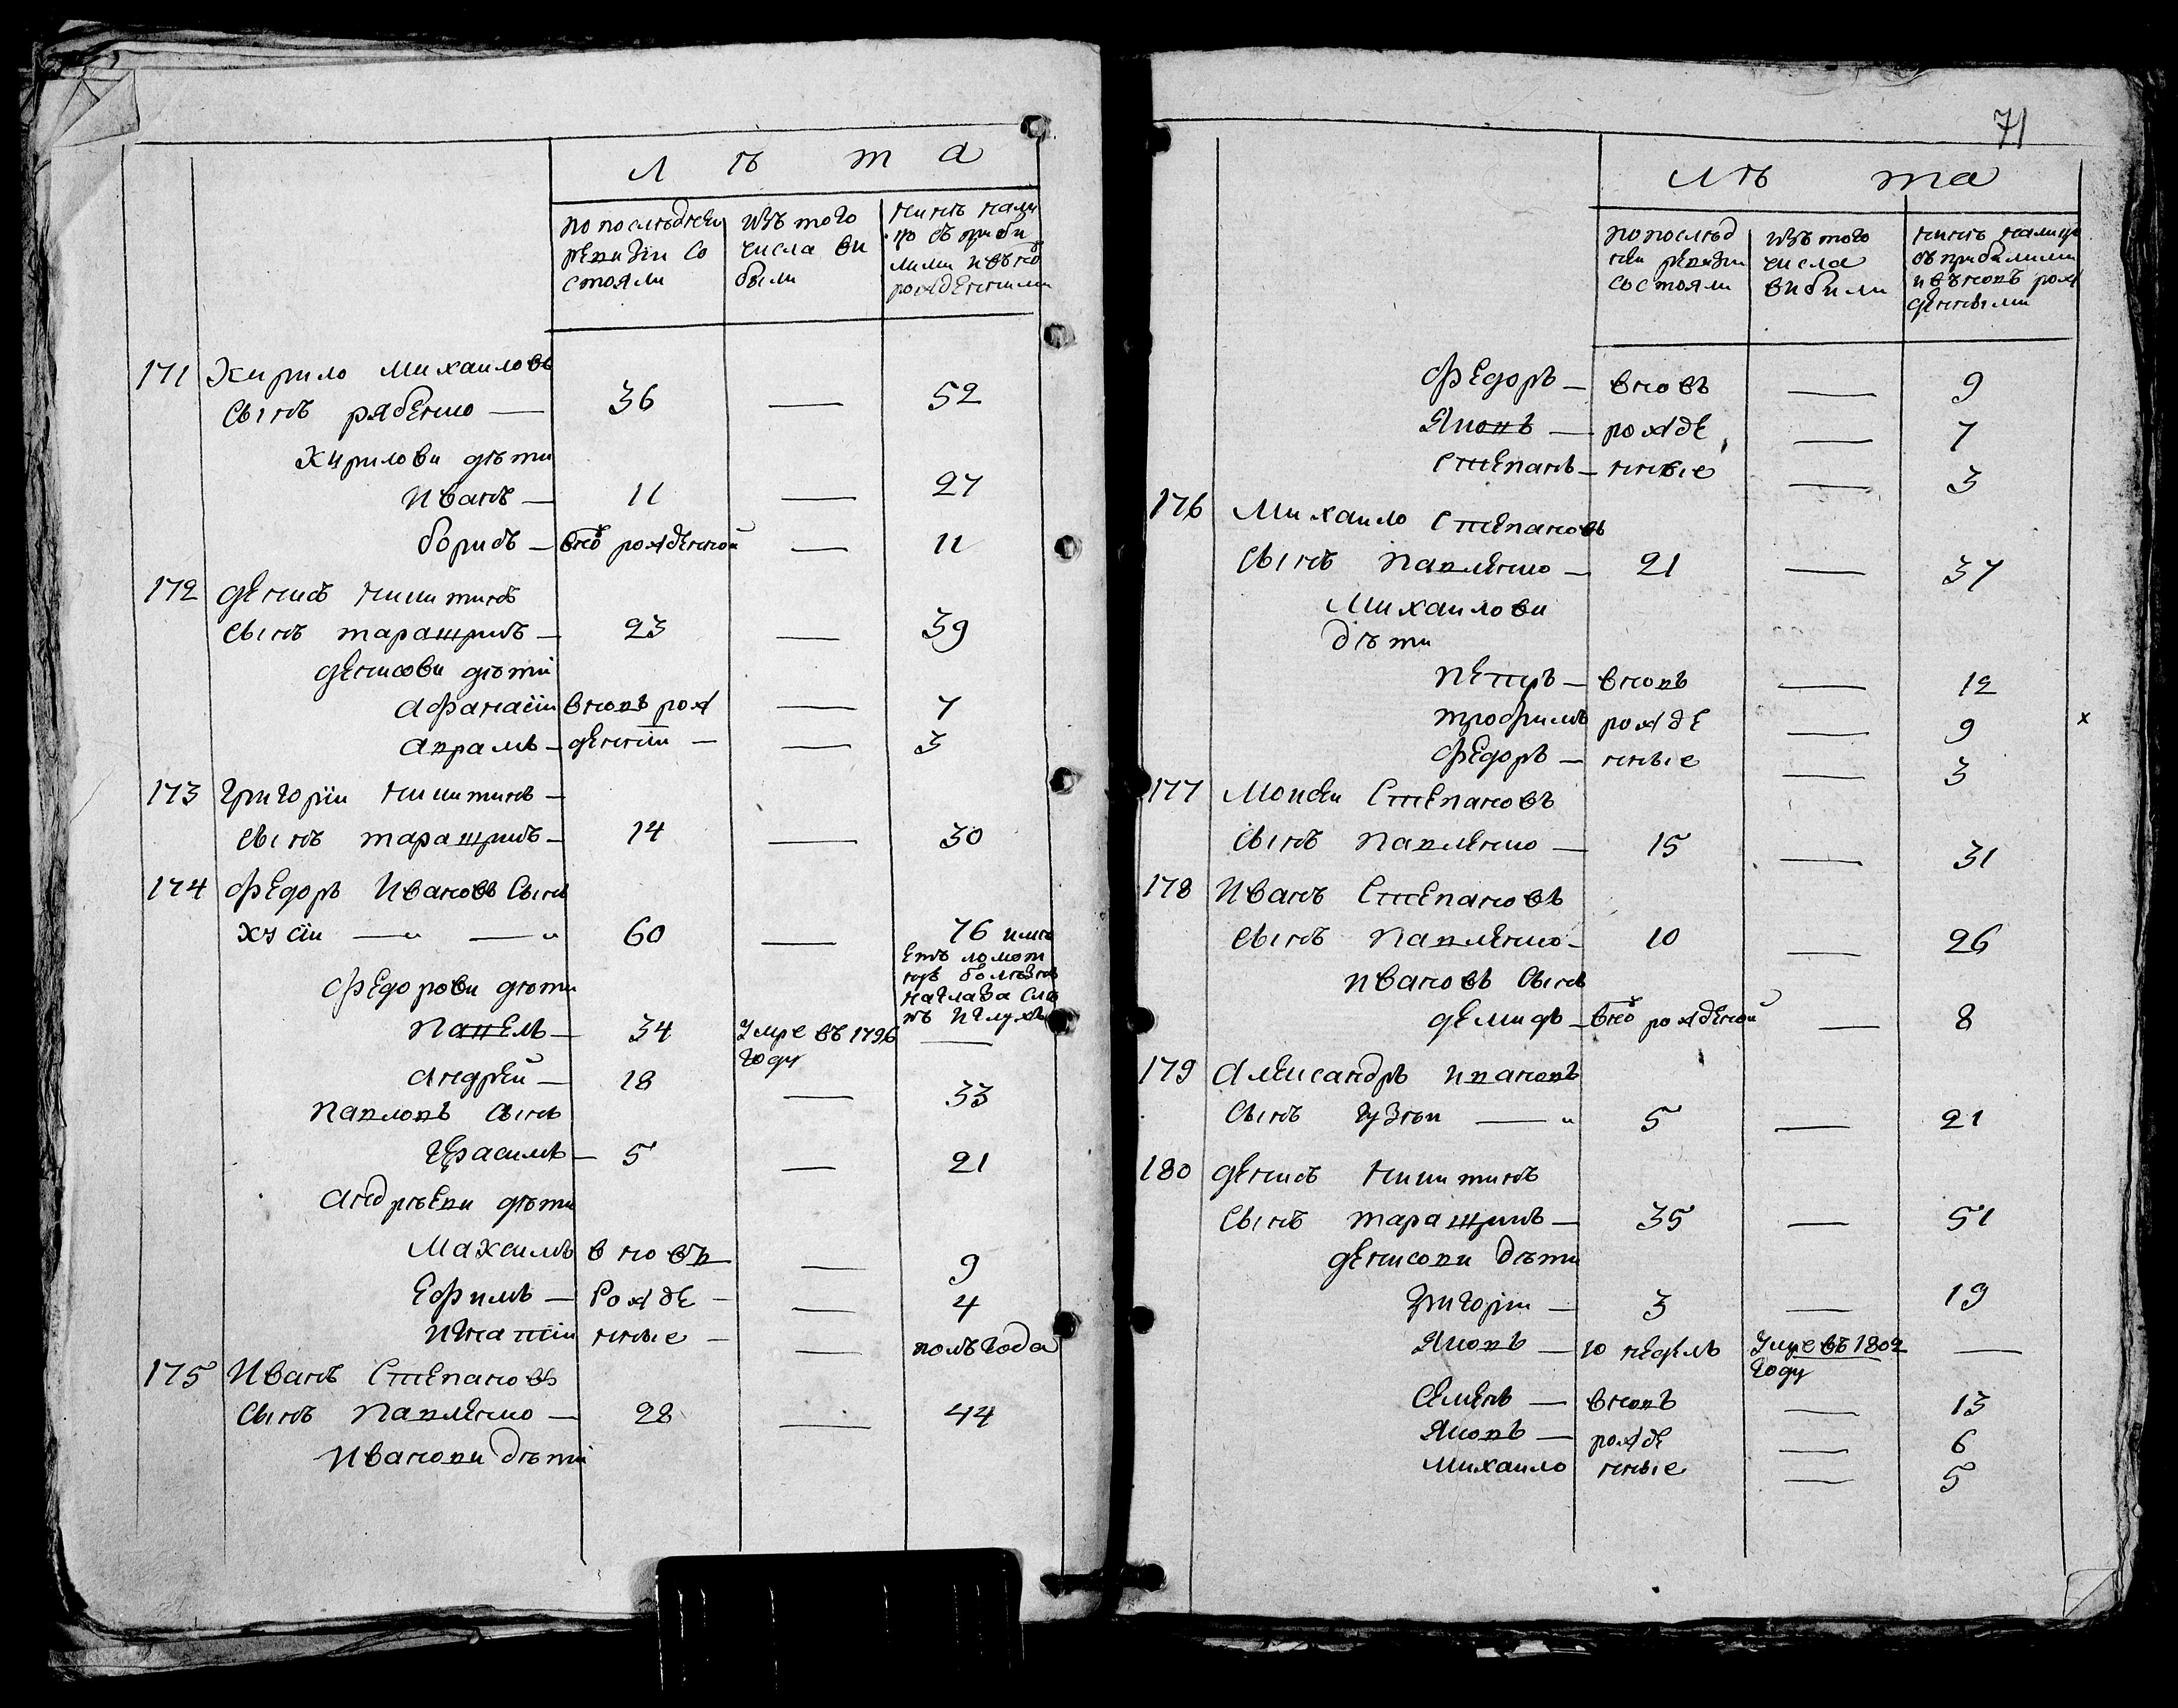 Л ѣ т а
по последнеи ревизiи со стояли
изъ того числа ви были
нинѣ нали цо съ приби лими и въновѣ рожденними
171 Кирило Михаиловъ
Синъ рябенко — 36 — 52
Кирилови дѣти
Иванъ — 11 — 27
борисъ — вновъ рожденной — 11
172 денисъ никитинъ
Синъ таращукъ — 23 — 39
денисови дѣти
Афанасiи вновъ рож — 7
Аврамъ — денніи — — 3
173 Григорiи никитинъ —
Синъ таращукъ — 14 — 30
174 Федоръ Ивановъ Синъ
— — 60 — 76 имѣ
етъ ломот
нуъ болѣзнъ
на глаза слѣ
пъ и глухъ
Федорови дѣти
Павелъ — 34 Умре въ 1796 году —
Андрѣй — 18 — 33
Павловъ Синъ
Герасимъ — 5 — 21
Андрѣеви дѣти
Максимъ вновъ — 9
Ефимъ — Рожде — — 4
Игнатiи нные — — полъ года
175 Иванъ Степановъ
Синъ Павленко — 28 — 44
Иванови дѣти
71
Лѣ та
по послед неи ревизiи состояли
изъ того числа вибили
нинѣ налицо съ прибилими и въновъ рож денными
Федоръ — вновъ — 9
Яковъ — рожде — 7
Степанъ — нные — 3
176 Михаило Степановъ
Синъ Павленко — 21 — 37
Михаилови
дѣти
Петръ — вновъ — 12
трофимъ рожде — 9 x
Федоръ — нные — 3
177 Моисеи Степановъ
Синъ Павленко — 15 — 31
178 Иванъ Степановъ
Синъ Павленко — 10 — 26
Ивановъ Синъ
демидъ — вновъ рожденой — 8
179 Александръ Ивановъ
Синъ — 5 — 21
180 денисъ никитинъ
Синъ таращукъ — 35 — 51
денисови дѣти
Григорiи — 3 — 19
Яковъ — 10 неделъ Умре въ 1802 году —
Семенъ — вновъ — 13
Яковъ — рожде — 6
Михаило нные — 5